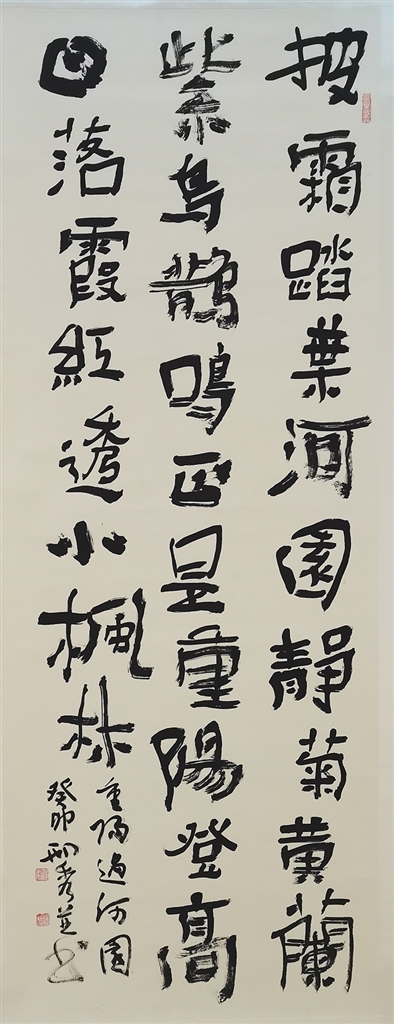 披霜踏葉河園静菊黄蘭
紫烏鵲鳴正是重陽登高
日落霞紅透小楓林
重陽過河園
癸卯邢秀兰书